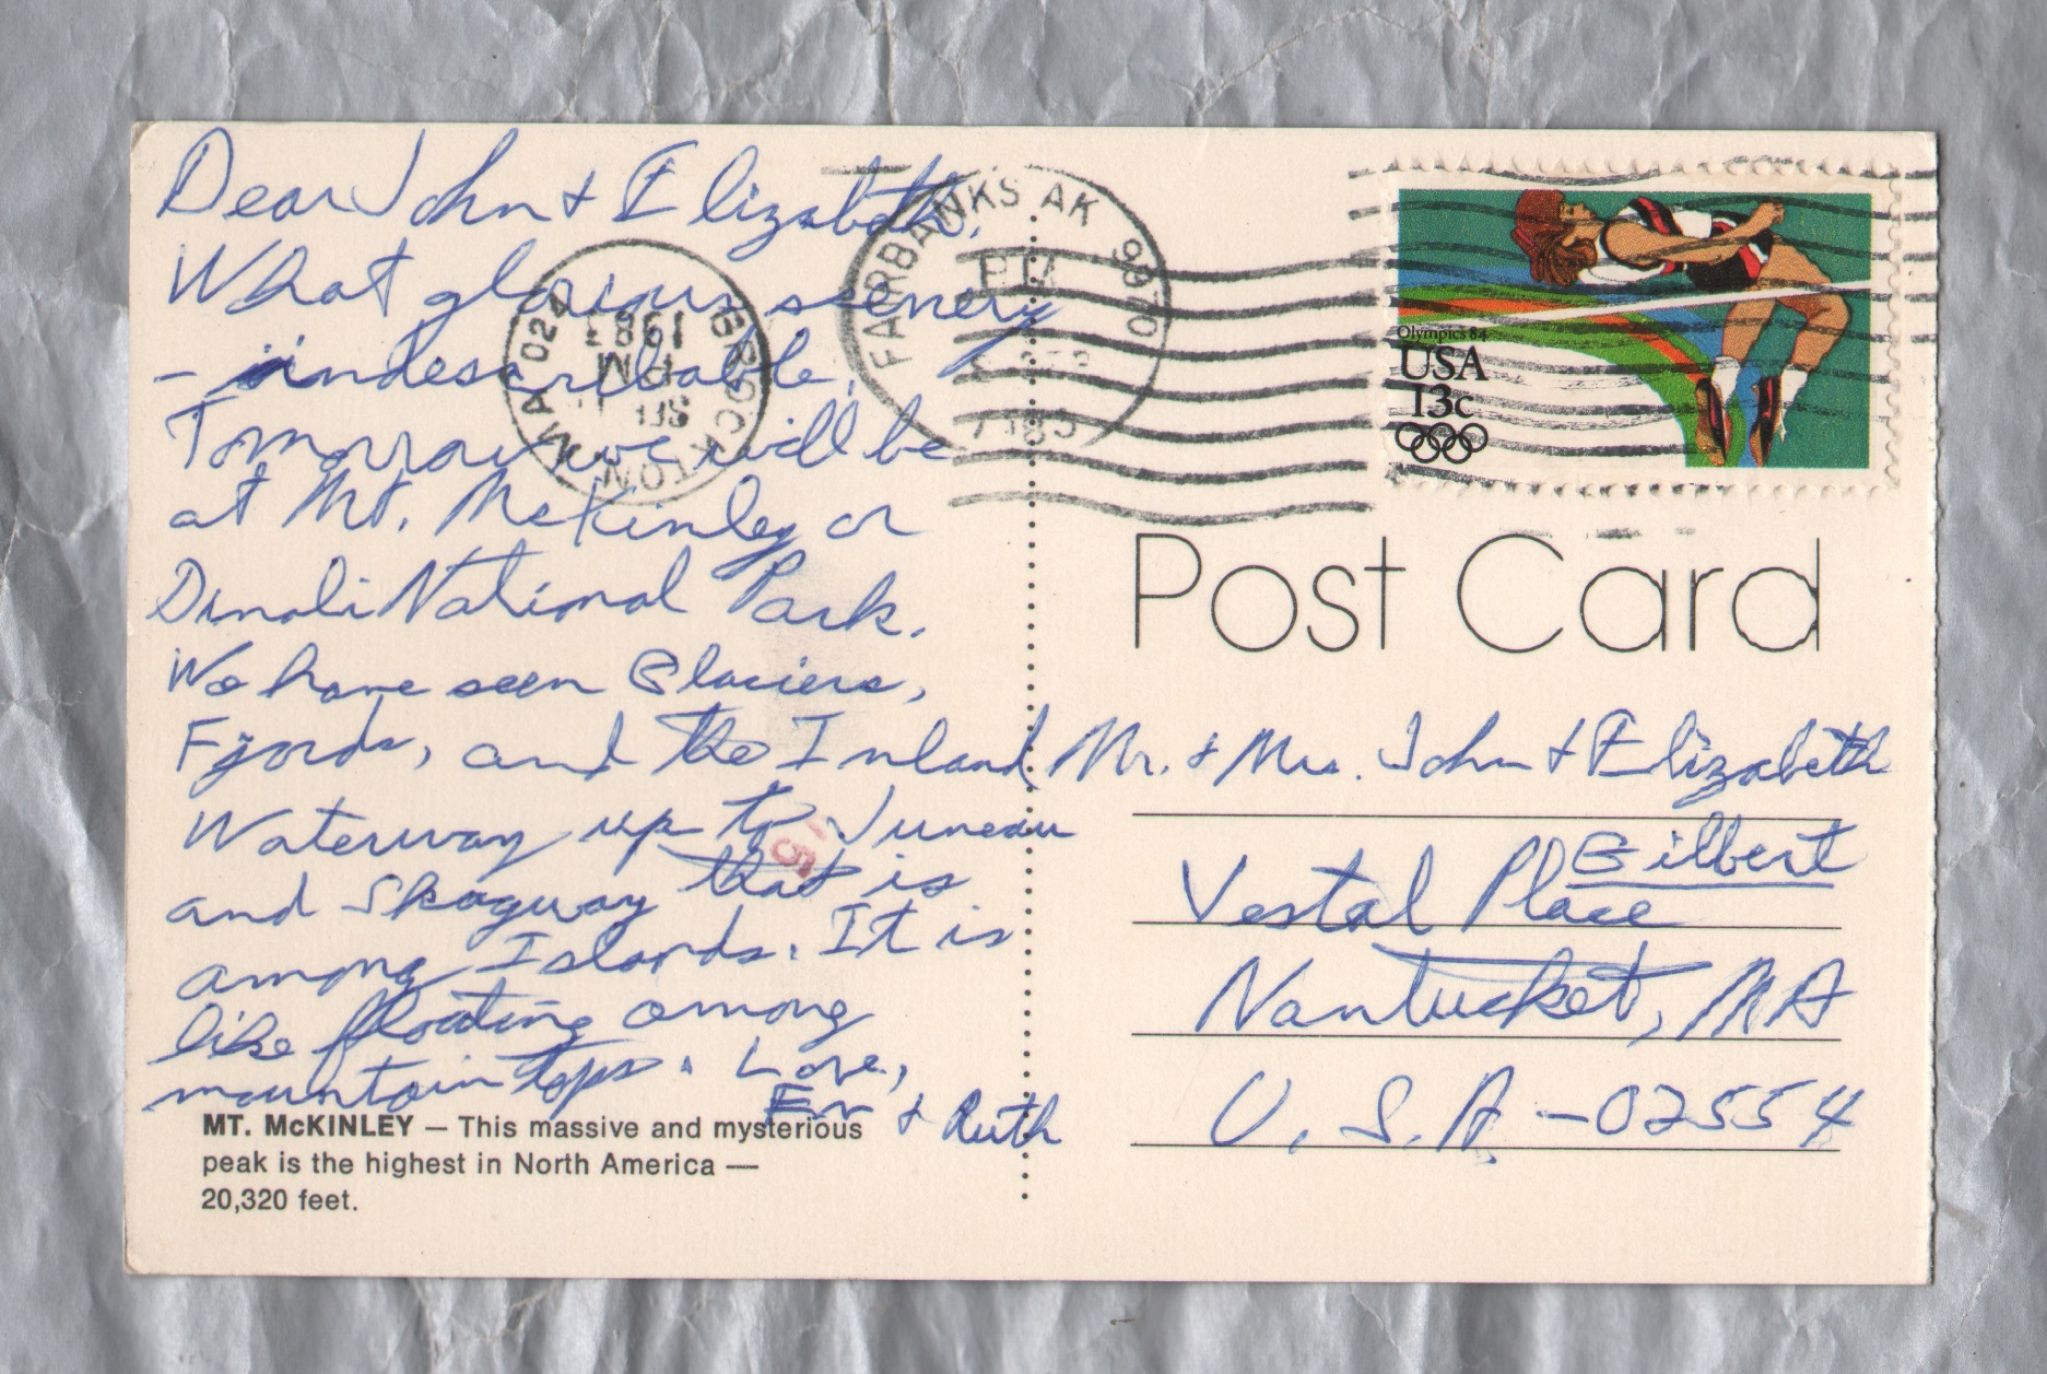 Dear John + Elizabeth,
What glorious scenery
- indescribable.
Tomorrow we will be
at Mt. McKinley or
Dinali National Park.
We have seen Glaciers,
Fjords, and the Inland
Waterway up to Juneau
and Skagway that is
among Islands. It is
like floating among
mountain tops. Love,
Ev + Ruth
MT. McKINLEY — This massive and mysterious
peak is the highest in North America —
20,320 feet.
BROCKTON MA 024
PM
1983
FAIRBANKS AK 99701
PM
1983
Olympics 84
USA
13c
Post Card
Mr. + Mrs. John + Elizabeth
Gilbert
Vestal Place
Nantucket, MA
U.S.A. - 02554